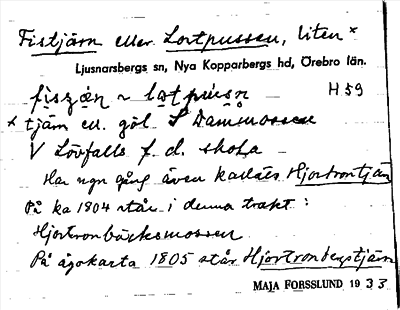 Fistjärn eller Lortpussen, liten ˣ
Ljusnarsbergs sn, Nya Kopparbergs hd, Örebro län.
H 59
x tjärn el. göl S Dammossen
V Lövfalls f.d. skola
Har ngn gång även kallats Hjortrontjärn
På ka 1804 står i denna trakt:
Hjortronbäcksmossen
På ägokarta 1805 står Hjortronbergstjärn
MAJA FORSSLUND 1933